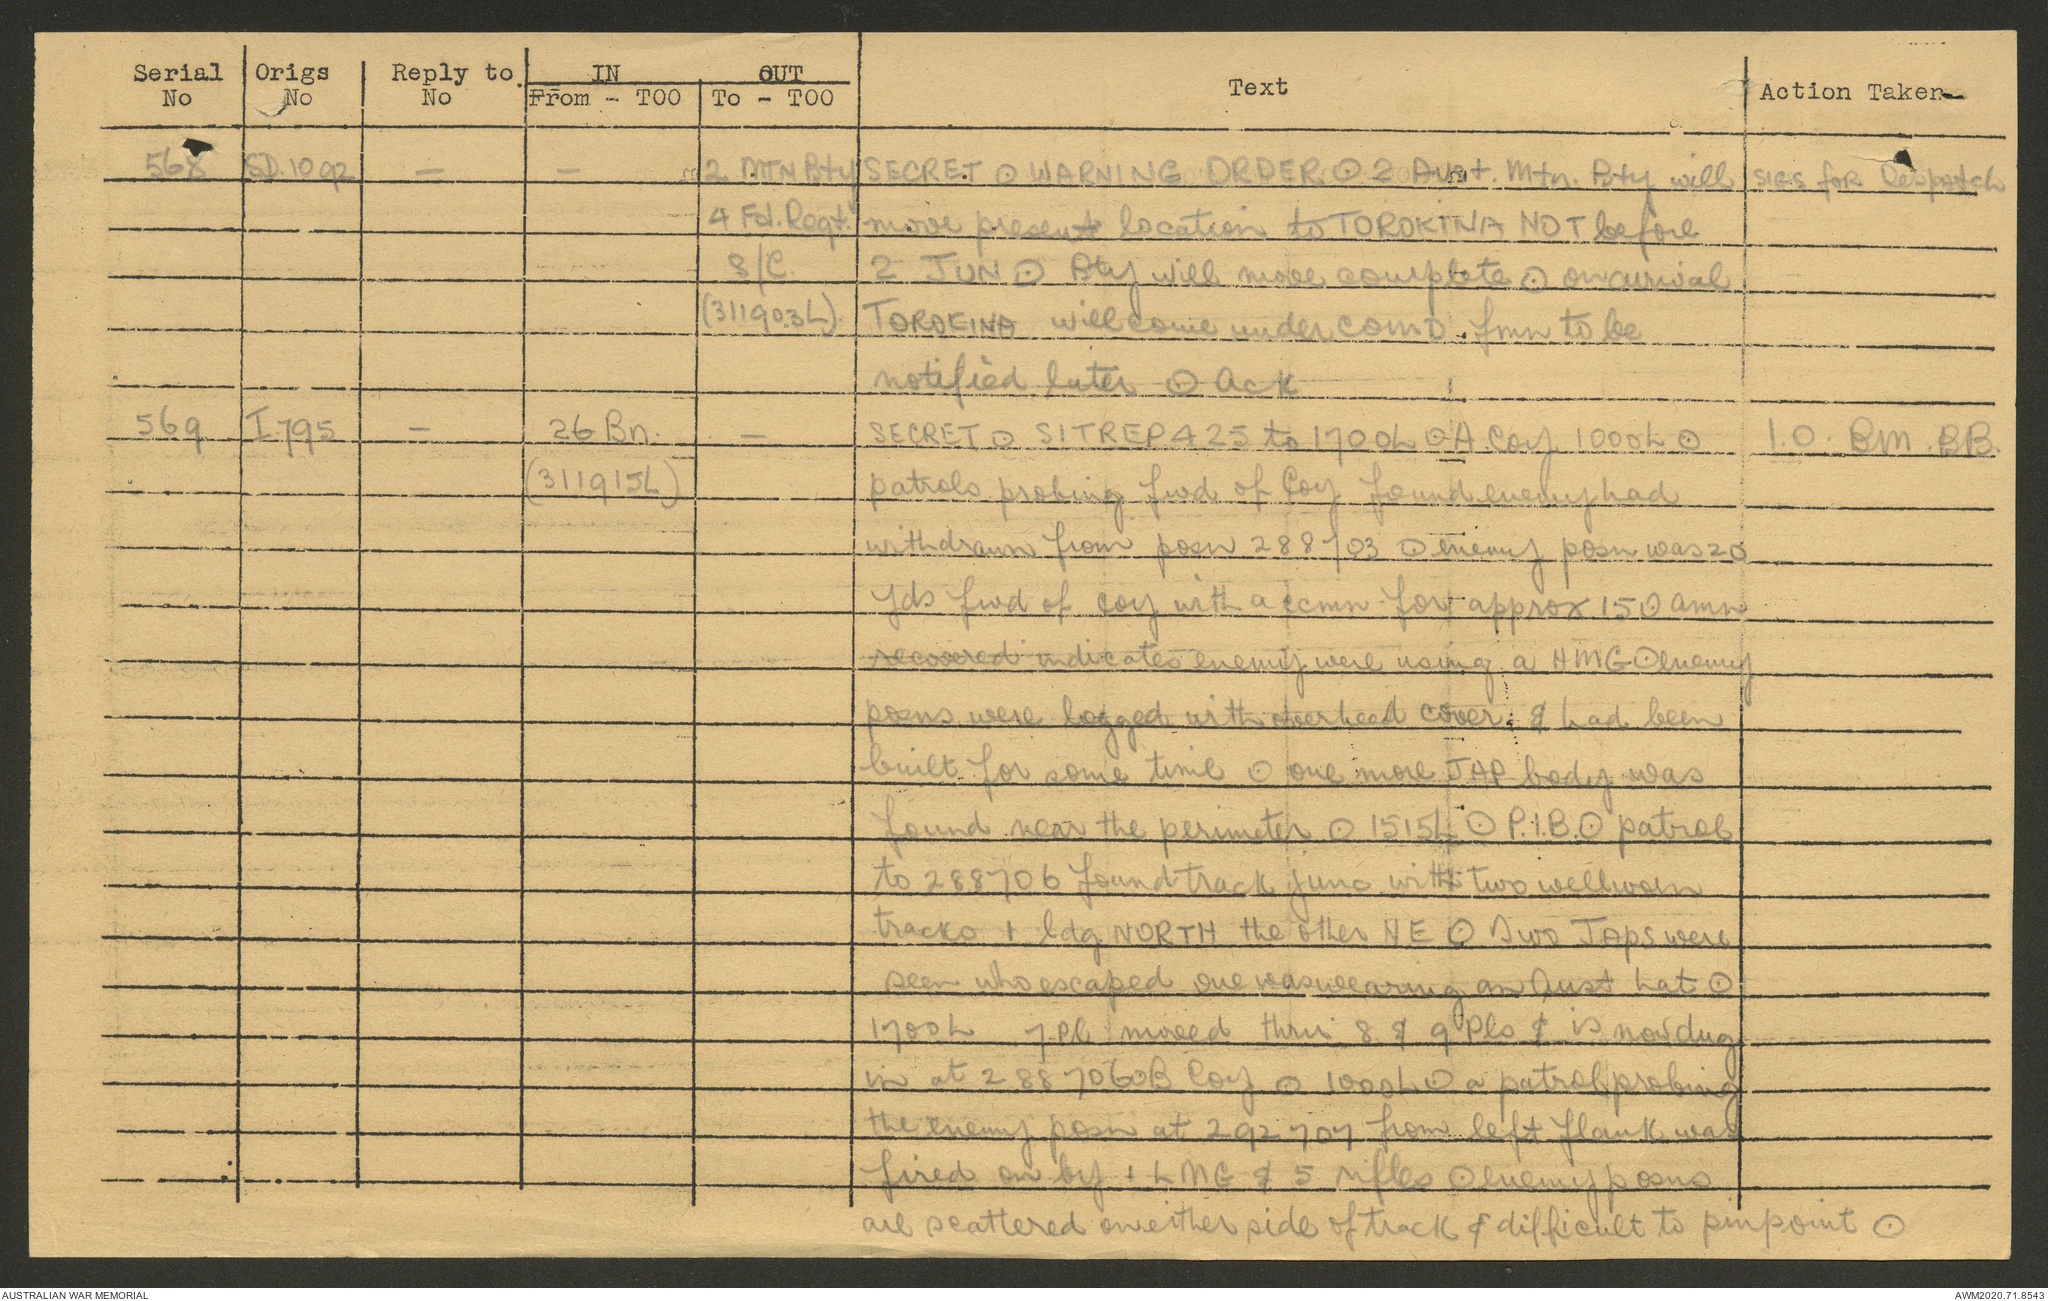 Serial No | Origs No | Reply to No | IN From - TOO | OUT To - TOO | Text | Action Taken
568 | SD.1092 | — | — | 2 MTN Bty | SECRET ⊙ WARNING ORDER ⊙ 2 Aust. Mtn. Bty will | SIGS for Despatch
4 Fd. Regt. | move present location to TOROKINA NOT before
S/C. | 2 JUN ⊙ Bty will move complete ⊙ on arrival
(311903L) | TOROKINA will come under comd. fmn to be
notified later ⊙ Ack
569 | I.795 | — | 26 Bn. | — | SECRET ⊙ SITREP 425 to 1700L ⊙ A Coy 1000L ⊙ | I.O. BM. BB.
(311915L) | patrols probing fwd of Coy found enemy had
withdrawn from posn 288703 ⊙ enemy posn was 20
yds fwd of coy with accmn for approx 15 ⊙ amn
recovered indicates enemy were using a HMG ⊙ enemy
posns were logged with overhead cover. & had been
built for some time ⊙ one more JAP body was
found near the perimeter ⊙ 1515L ⊙ P.I.B. ⊙ patrol
to 288706 found track junc with two well worn
tracks 1 ldg NORTH the other NE ⊙ Two Japs were
seen who escaped one was wearing an Aust hat ⊙
1700L 7 Pl moved thru 8 & 9 Pls & is now dug
in at 288706 ⊙ B Coy ⊙ 1000L ⊙ a patrol probing
the enemy posn at 292707 from left flank was
fired on by 1 LMG & 5 rifles ⊙ enemy posns
are scattered on either side of track & difficult to pinpoint ⊙
AUSTRALIAN WAR MEMORIAL
AWM2020.71.8543